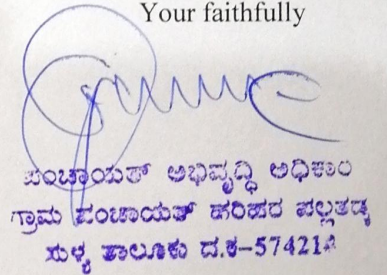 Your faithfully
ಪಂಚಾಯತ್ ಅಭಿವೃದ್ಧಿ ಅಧಿಕಾರಿ
ಗ್ರಾಮ ಪಂಚಾಯತ್ ಹರಿಹರ ಪಲ್ಲತಡ್ಕ
ಸುಳ್ಯ ತಾಲೂಕು ದ.ಕ-574218